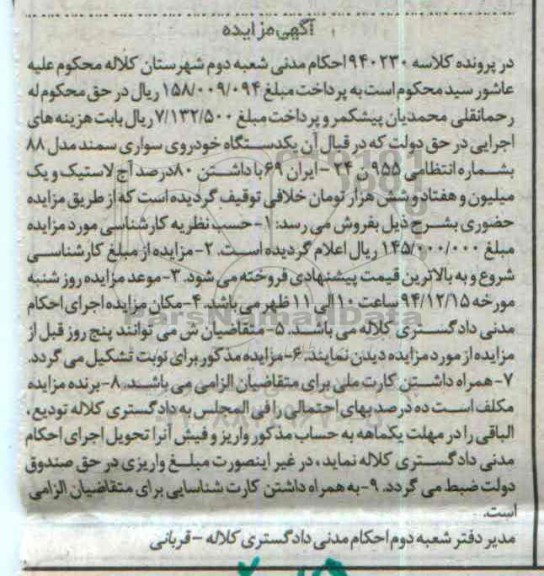 آگهی مزایده
در پرونده کلاسه ۹۴۰۲۳۰ احکام مدنی شعبه دوم شهرستان کلاله محکوم علیه
عاشور سید محکوم است به پرداخت مبلغ ۱۵۸/۰۰۹/۰۹۴ ریال در حق محکوم له
رحمانقلی محمدیان پیشکمر و پرداخت مبلغ ۷/۱۳۲/۵۰۰ ریال بابت هزینه های
اجرایی در حق دولت که در قبال آن یکدستگاه خودروی سواری سمند مدل ۸۸
بشماره انتظامی ۹۵۵ن۲۴ - ایران ۶۹ با داشتن ۸۰درصد آج لاستیک و یک
میلیون و هفتاد و شش هزار تومان خلافی توقیف گردیده است که از طریق مزایده
حضوری بشرح ذیل بفروش می رسد: ۱- حسب نظریه کارشناسی مورد مزایده
مبلغ ۱۴۵/۰۰۰/۰۰۰ ریال اعلام گردیده است. ۲- مزایده از مبلغ کارشناسی
شروع و به بالاترین قیمت پیشنهادی فروخته می شود. ۳- موعد مزایده روز شنبه
مورخه ۹۴/۱۲/۱۵ ساعت ۱۰ الی ۱۱ ظهر می باشد. ۴- مکان مزایده اجرای احکام
مدنی دادگستری کلاله می باشد. ۵- متقاضیان می توانند پنج روز قبل از
مزایده از مورد مزایده دیدن نمایند. ۶- مزایده مذکور برای نوبت تشکیل می گردد.
۷- همراه داشتن کارت ملی برای متقاضیان الزامی می باشد. ۸- برنده مزایده
مکلف است ده درصد بهای احتمالی را فی المجلس به دادگستری کلاله تودیع،
الباقی را در مهلت یکماهه به حساب مذکور واریز و فیش آنرا تحویل اجرای احکام
مدنی دادگستری کلاله نماید، در غیر اینصورت مبلغ واریزی در حق صندوق
دولت ضبط می گردد. ۹- به همراه داشتن کارت شناسایی برای متقاضیان الزامی
است.
مدیر دفتر شعبه دوم احکام مدنی دادگستری کلاله - قربانی
ParsNamadData